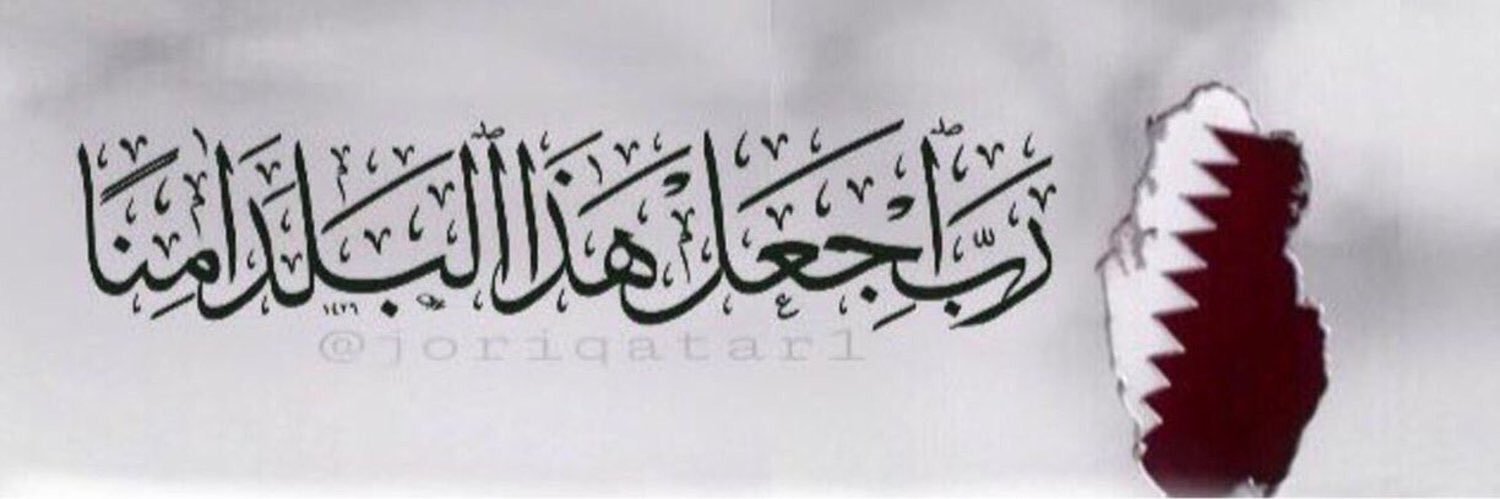 رَبِّ ٱجْعَلْ هَٰذَا ٱلْبَلَدَ اٰمِنًا
١٤٢٦
@joriqatar1